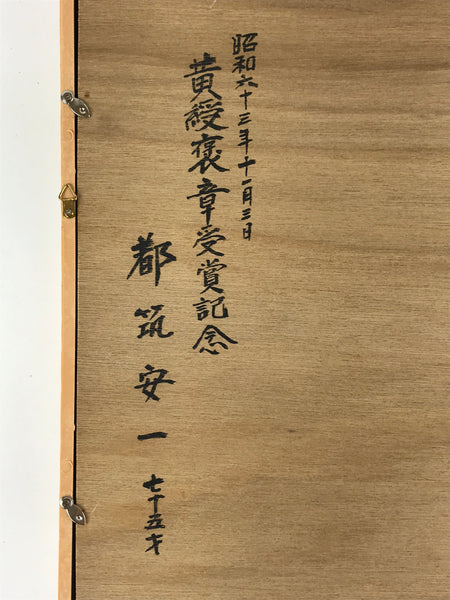 昭和六十三年十一月三日
黄綬褒章受賞記念
都筑安一
七十五才